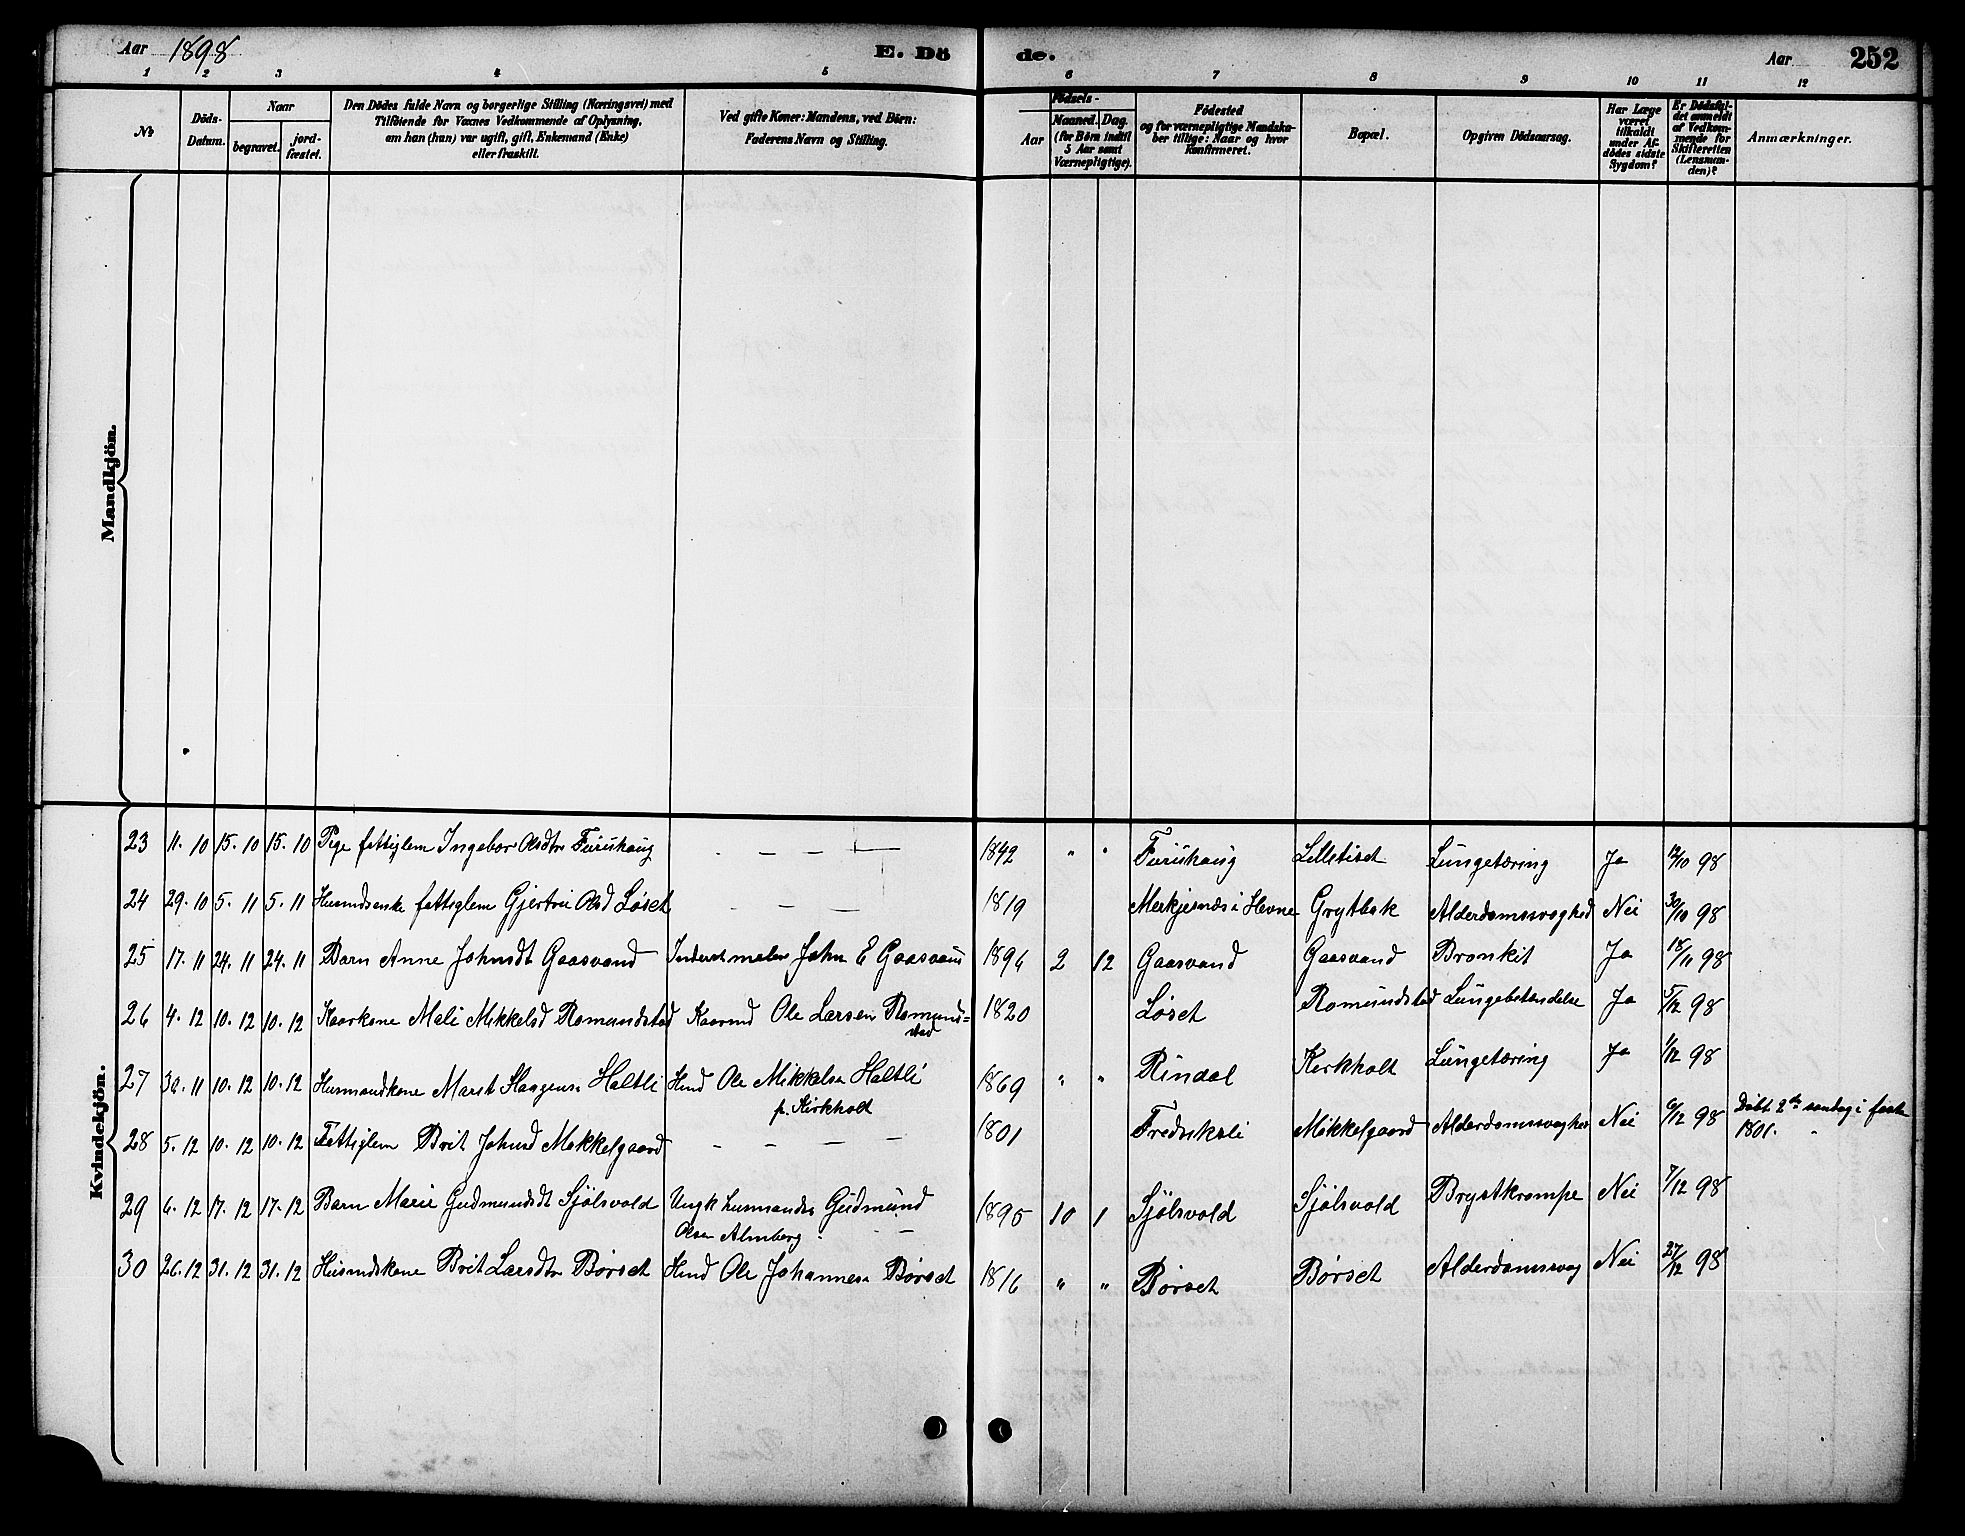 Aar 1898 E. Dö de. Aar 252
1 2 3 4 5 6 7 8 9 10 11 12
№ Döds-Datum. Naar begravet. jordfæstet. Den Dödes fulde Navn og borgerlige Stilling (Næringsvei) med Tilföiende for Voxnes Vedkommende af Oplysning, om han (hun) var ugift, gift, Enkemand (Enke) eller fraskilt. Ved gifte Koner: Mandens, ved Börn: Faderens Navn og Stilling. Födsels- Aar Maaned. Dag. (for Börn indtil 5 Aar samt Værnepligtige). Födested og for værnepligtige Mandskaber tillige: Naar og hvor Konfirmeret. Bopæl. Opgiven Dödsaarsag. Har Læge været tilkaldt under Afdödes sidste Sygdom? Er Dödsfaldet anmeldt af Vedkommende for Skifteretten (Lensmanden)? Anmærkninger.
Mandkjön.
Kvindekjön.
23 11. 10 15. 10 15. 10 Pige fattiglem Ingebor Olsdtr Furuhaug - — — — 1842 " " Furuhaug Lilletiset Lungetæring Ja 12/10 98
24 29. 10 5. 11 5. 11 Husmdsenke fattiglem Gjertru Olsd Løset - — — — 1819 Merkjesnæs i Hevne Grytbak Alderdomssvaghed Nei 30/10 98
25 17. 11 24. 11 24. 11 Barn Anne Johnsdt Gaasvand Inderst maler John E Gaasvand 1896 2 12 Gaasvand Gaasvand Bronkit Ja 18/11 98
26 4. 12 10. 12 10. 12 Kaarkone Mali Mikkelsd Romundstad Kaarmd Ole Larsen Romund=
stad 1820 Løset Romundstad Lungebetændelse Ja 5/12 98
27 30. 11 10. 12 10. 12 Husmandkone Marit Haagens Haltli Hmd Ole Mikkelsen Haltli
p. Kirkholt 1869 " " Rindal Kirkholt Lungetæring Ja 1/12 98
28 5. 12 10. 12 10. 12 Fattiglem Brit Johnsd Mikkelgaard - — — — 1801 Fredriksli Mikkelgaard Alderdomssvaghed Nei 6/12 98 Døbt 2den søndag i faste
1801.
29 6. 12 17. 12 17. 12 Barn Marie Gudmundsdt Sjølsvold Ungk husmandss Gudmund
Olsen Almberg. — — 1895 10 1 Sjølsvold Sjølsvold Brystkrampe Nei 7/12 98
30 26. 12 31. 12 31. 12 Husmdskone Brit Larsdtr Børset Hmd Ole Johannesen Børset 1816 " " Børset Børset Alderdomssvag Nei 27/12 98